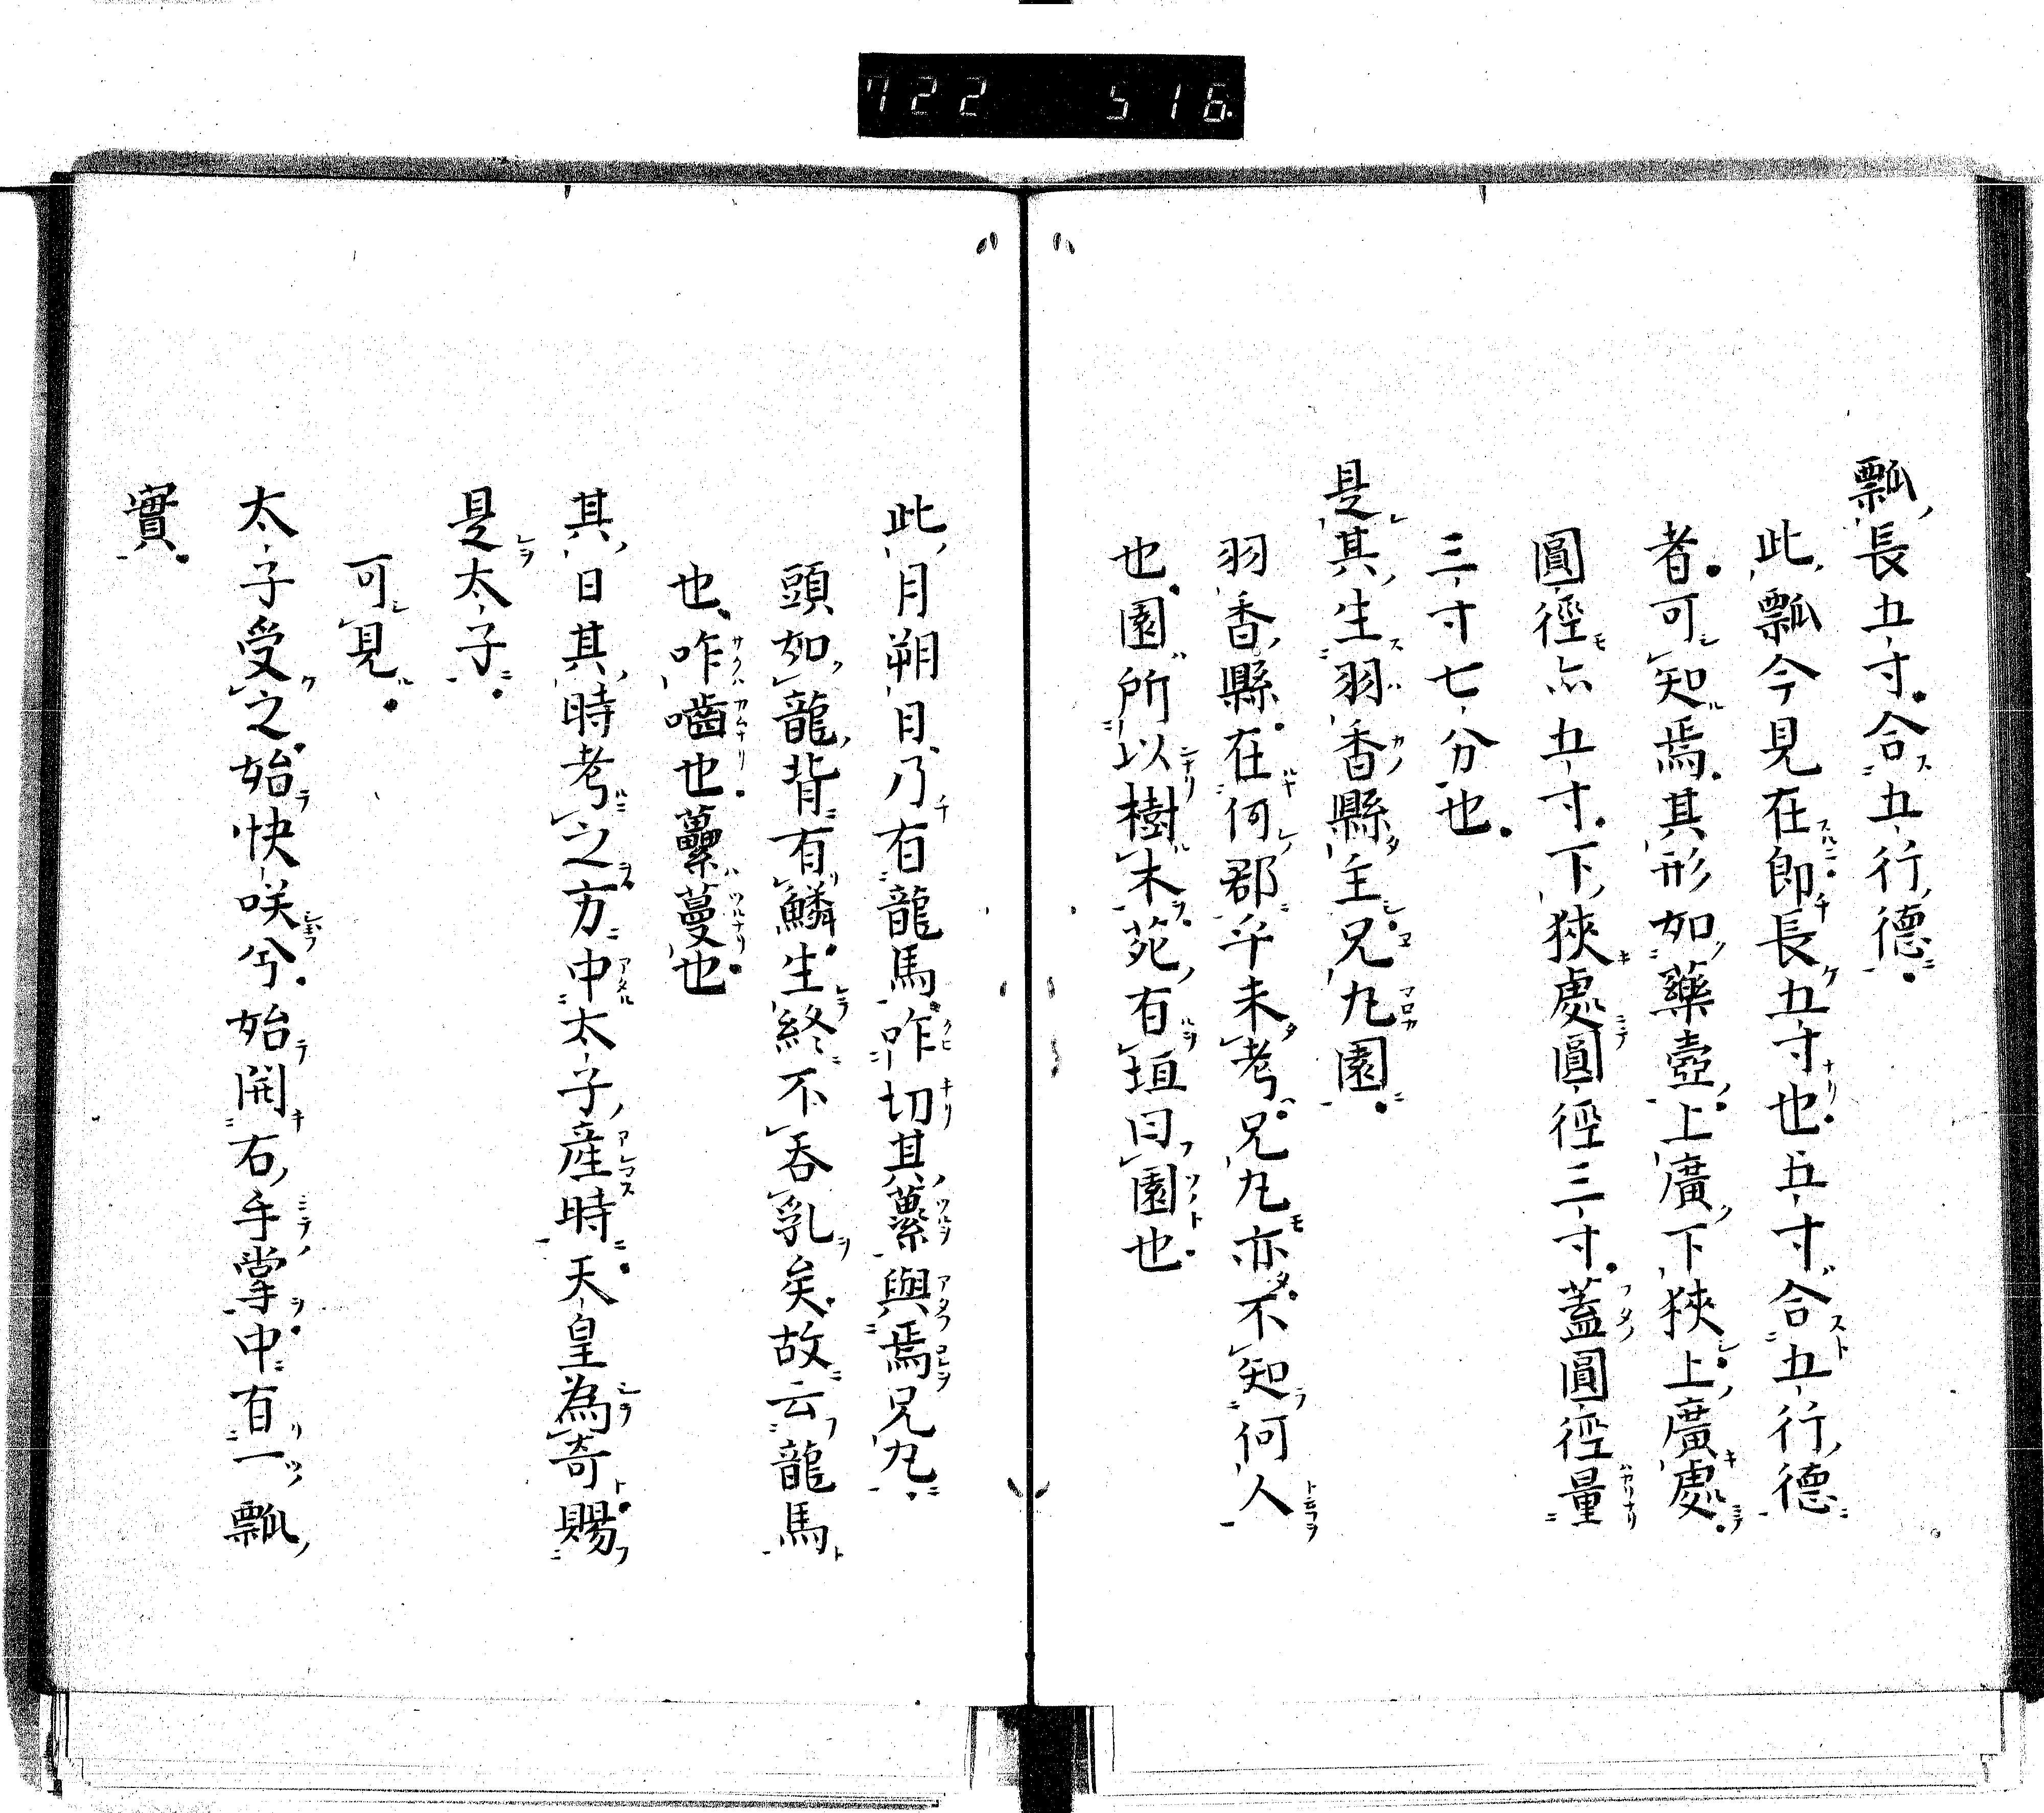 722 516
瓢長五寸合五行德
此瓢今見在即長五寸也五寸合五行德
者可知焉其形如藥壺上廣下狹上廣處
圓徑亦五寸下狹處圓徑三寸蓋圓徑量
三寸七分也
是其生羽香縣主兄丸園
羽香縣在何郡乎未考兄丸亦不知何人
也園所以樹木苑有垣曰園也
此月朔日乃有龍馬咋切其虆與焉兄丸
頭如龍背有鱗生終不吞乳矣故云龍馬
也咋嚙也虆蔓也
其日其時考之方中太子產時天皇為奇賜
是太子
可見
太子受之始快咲兮始開右手掌中有一瓢
實